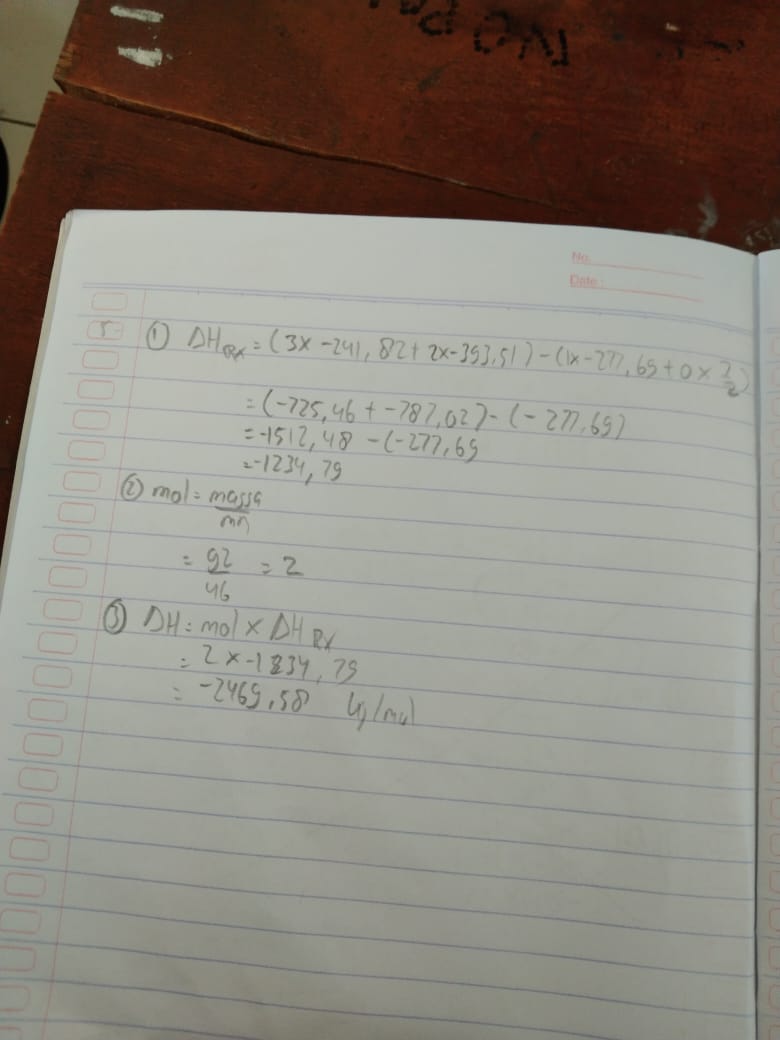 NO PA
No.
Date :
5. ① ΔHRX = (3x -241,82 + 2x-393,51) - (1x-277,69 + 0 x 7/2)
= (-725,46 + -787,02) - (-277,69)
= -1512,48 - (-277,69
= -1234,79
② mol = massa
mr
= 92 = 2
46
③ ΔH = mol x ΔH RX
= 2 x -1234,79
= -2469,58 kj/mol